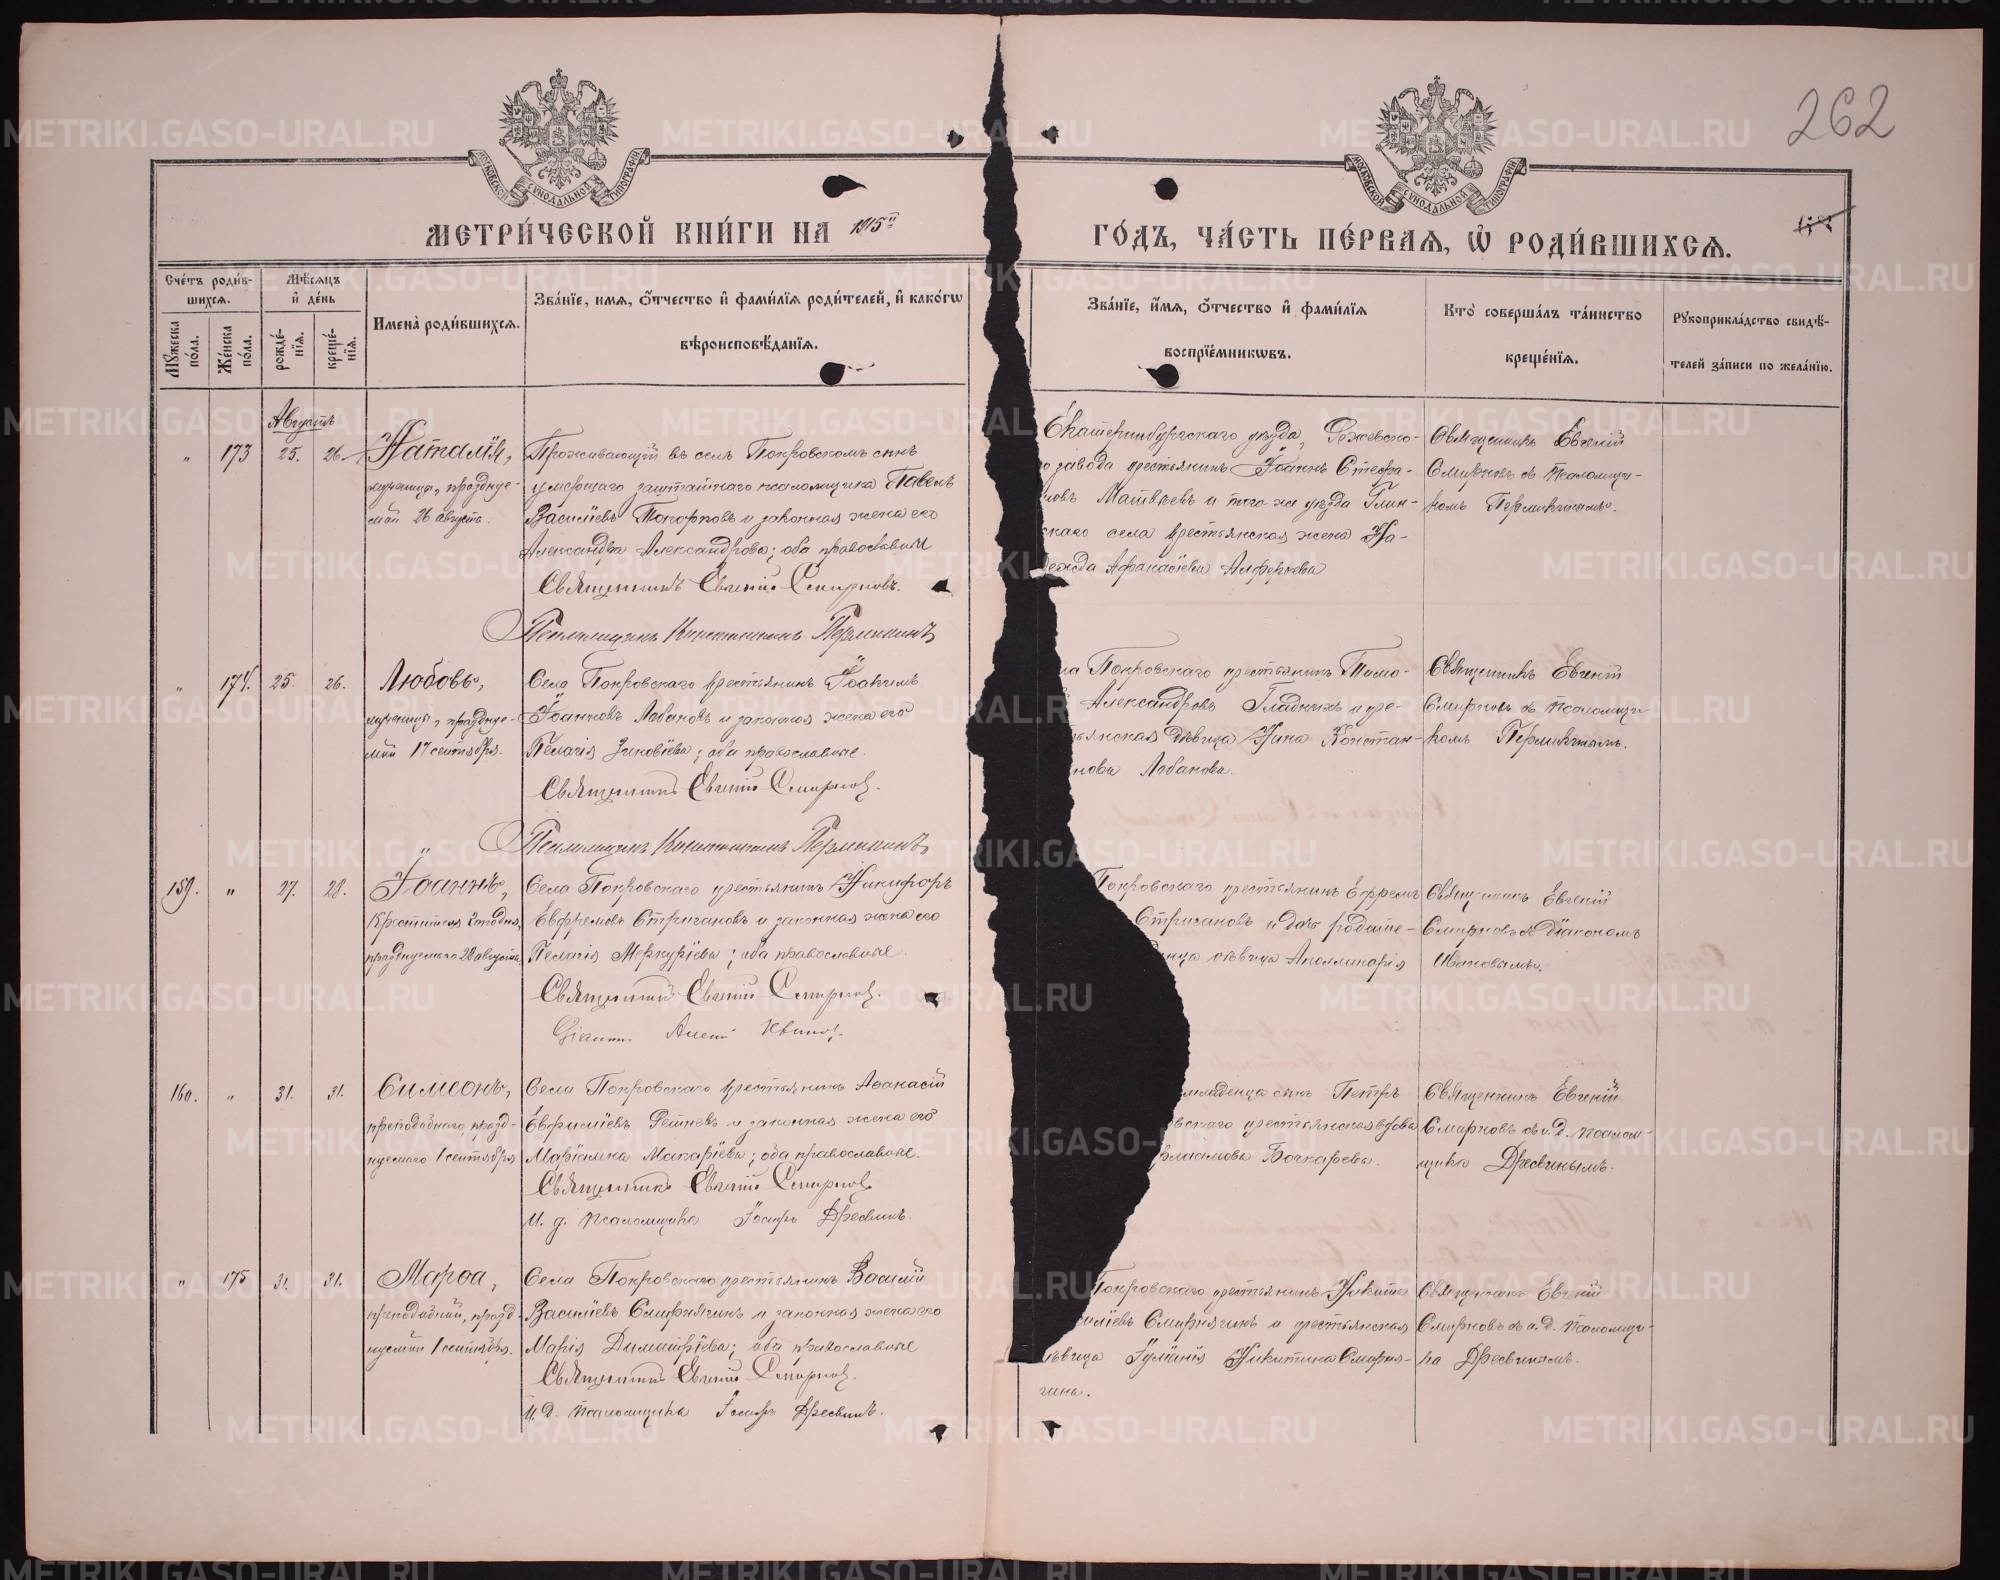 262
МОСКОВСКОЙ СУНОДАЛЬНОЙ ТИПОГРАФІИ
МОСКОВСКОЙ СУНОДАЛЬНОЙ ТИПОГРАФІИ
МЕТРИ́ЧЕСКОЙ КНИ́ГИ НА 1915й
ГО́ДЪ, ЧА́СТЬ ПЕ́РВАѦ, Ѽ РОДИ́ВШИХСѦ.
Сче́тъ роди́в-
шихся.
Мѣ́сяцъ
и҆ де́нь
Мꙋжеска по́ла.
Же́нска по́ла.
рожде́-
нїѧ.
креще́-
нїѧ.
Имена̀ роди́вшихся.
Зва́нїе, имя, ѻ҆́тчество и҆ фами́лїя роди́телей, и҆ како́гѡ
вѣроисповѣ́данїя.
Зва́нїе, и҆́мя, ѻ҆́тчество и҆ фами́лїя
воспрїе́мникѡвъ.
Кто̀ соверша́лъ та́инство
креще́нїя.
Рꙋкоприкла́дство свидѣ́-
телей за́писи по жела́нїю.
Августъ
" 173 25. 26
Наталія,
мученицы, праздну-
емой 26 августа.
Проживающій въ селѣ Покровскомъ сынъ
умершаго заштатнаго псаломщика Павелъ
Васильевъ Топорковъ и законная жена его
Александра Александрова; оба православные
Священникъ Евгеній Смирновъ.
Псаломщикъ Константинъ Пермикинъ
Екатеринбургскаго уѣзда, Режевско-
го завода крестьянинъ Іоаннъ Стефа-
новъ Матвѣевъ и того-же уѣзда Глин-
скаго села крестьянская жена На-
дежда Афанасіева Алферьева
Священникъ Евгеній
Смирновъ съ псаломщи-
комъ Пермикинымъ.
" 174. 25. 26.
Любовь,
мученицы, праздну-
емой 17 сентября.
Села Покровскаго крестьянинъ Іоакимъ
Іоанновъ Лобановъ и законная жена его
Пелагія Зиновіева; оба православные.
Священникъ Евгеній Смирновъ.
Псаломщикъ Константинъ Пермикинъ
Покровскаго крестьянинъ Тимо-
Александровъ Гладкихъ и кре-
дѣвица Нина Констан-
нова Лобанова.
Священникъ Евгеній
Смирновъ съ псаломщи-
комъ Пермикинымъ.
159. " 27. 28.
Іоаннъ,
Крестителя Господня,
празднуемаго 29 августа.
Села Покровскаго крестьянинъ Никифоръ
Евфремовъ Стригановъ и законная жена его
Пелагія Меркуріева; оба православные.
Священникъ Евгеній Смирновъ.
Діаконъ Ивановъ.
Покровскаго крестьянинъ Ефремъ
Стригановъ и дочь родите-
дѣвица Аполлинарія
Священникъ Евгеній
Смирновъ съ діакономъ
Ивановымъ.
160. " 31. 31.
Симеонъ,
преподобнаго, празд-
нуемаго 1 сентября
Села Покровскаго крестьянинъ Аѳанасій
Рѣпневъ и законная жена его
Маріамна Макаріева; оба православные.
Священникъ Евгеній Смирновъ
И. д. псаломщика Іосифъ Дресвинъ.
младенца сынъ Петръ
вскаго крестьянская вдова
Бочкарева.
Священникъ Евгеній
Смирновъ съ и. д. псалом-
щика Дресвинымъ.
" 175 31. 31.
Марѳа,
преподобной, празд-
нуемой 1 сентября.
Села Покровскаго крестьянинъ Василій
Васильевъ Смирнягинъ и законная жена его
Марія Димитріева; оба православные
Священникъ Евгеній Смирновъ.
И. д. псаломщика Іосифъ Дресвинъ.
Покровскаго крестьянинъ Никита
Смирнягинъ и крестьянская
дѣвица Іуліанія Никитина Смирня-
гина.
Священникъ Евгеній
Смирновъ съ и. д. псаломщи-
ка Дресвинымъ.
METRIKI.GASO-URAL.RU